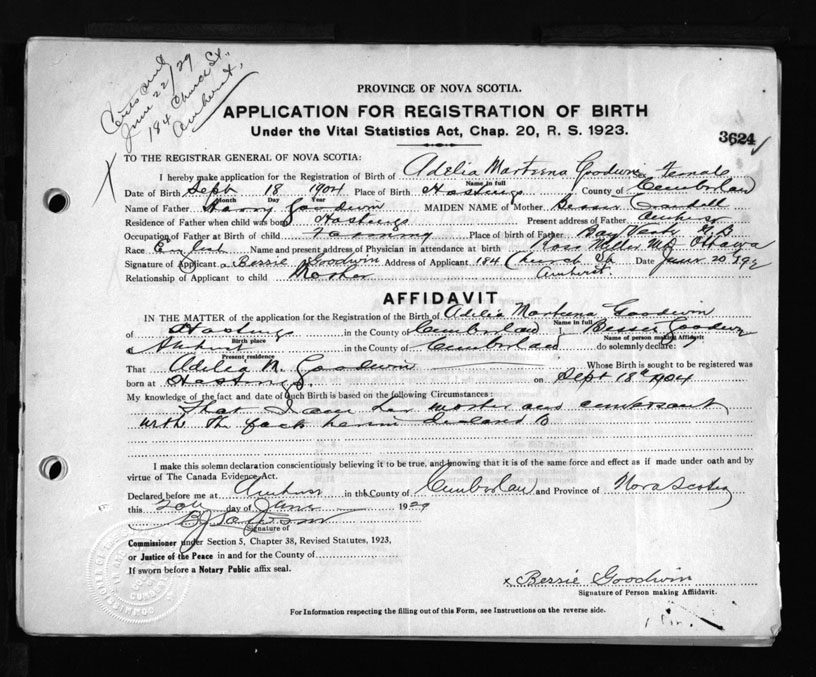 Certs sent
June 22/29
184 Church St.
Amherst,
PROVINCE OF NOVA SCOTIA.
APPLICATION FOR REGISTRATION OF BIRTH
Under the Vital Statistics Act, Chap. 20, R. S. 1923.
3624
TO THE REGISTRAR GENERAL OF NOVA SCOTIA:
I hereby make application for the Registration of Birth of Adelia Goodwin Sex female
Name in full
Date of Birth Sept 18 1904 Place of Birth Hastings County of Cumberlan
Month Day Year
Name of Father Harry Goodwin MAIDEN NAME of Mother Bessie
Residence of Father when child was born Hastings Present address of Father
Occupation of Father at Birth of child Farming Place of birth of Father Bay Verte N B
Race English Name and present address of Physician in attendance at birth Ross Millar MD Ottawa
Signature of Applicant Bessie Goodwin Address of Applicant 184 Church St Date June 20 192
Amherst.
Relationship of Applicant to child Mother
AFFIDAVIT
IN THE MATTER of the application for the Registration of the Birth of Adelia Goodwin
Name in full
of Hastings in the County of Cumberlan Bessie Goodwin
Birth place Name of person making Affidavit
Amherst in the County of Cumberlan do solemnly declare:
Present residence
That Adelia M. Goodwin Whose Birth is sought to be registered was
born at Hastings. on Sept 18th 1904
My knowledge of the fact and date of such Birth is based on the following Circumstances:
That I am her mother and
with the facts herein
I make this solemn declaration conscientiously believing it to be true, and knowing that it is of the same force and effect as if made under oath and by
virtue of The Canada Evidence Act.
Declared before me at Amherst in the County of Cumberlan and Province of Nova Scotia
this 20th day of June 1929
Signature of
Commissioner under Section 5, Chapter 38, Revised Statutes, 1923,
or Justice of the Peace in and for the County of
If sworn before a Notary Public affix seal.
x Bessie Goodwin
Signature of Person making Affidavit.
For Information respecting the filling out of this Form, see Instructions on the reverse side.